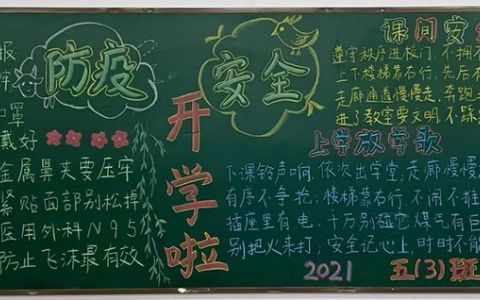 报
防疫
罩
戴好
金属鼻夫要压牢
紧贴面部别松掉
医用外科N95
防止飞沫最有效
开学啦
安全
课间安
遵守秩序进校门,不拥
上下楼梯靠右行,先后有
走廊通道慢慢走,奔跑
进了教室要文明,不
上学放学歌
下课铃声响,依次出学堂;走廊慢慢
有序不争抢;楼梯靠右行,不闹不推
插座里有电,千万别碰它煤气有巨
别把火来打;安全记心上,时时不能
2021
五(3)班